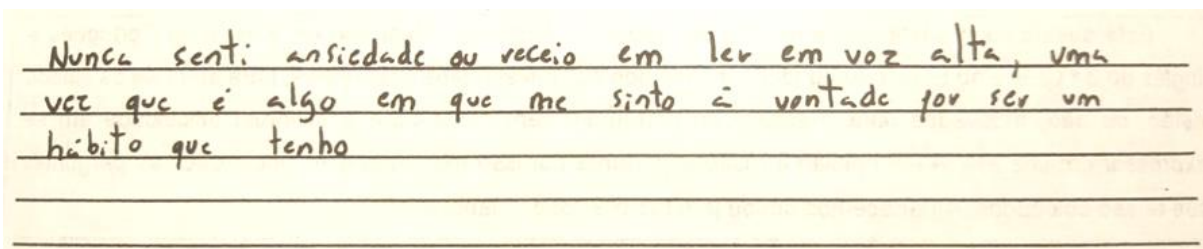 Nunca senti ansiedade ou receio em ler em voz alta, uma
vez que é algo em que me sinto à vontade por ser um
hábito que tenho